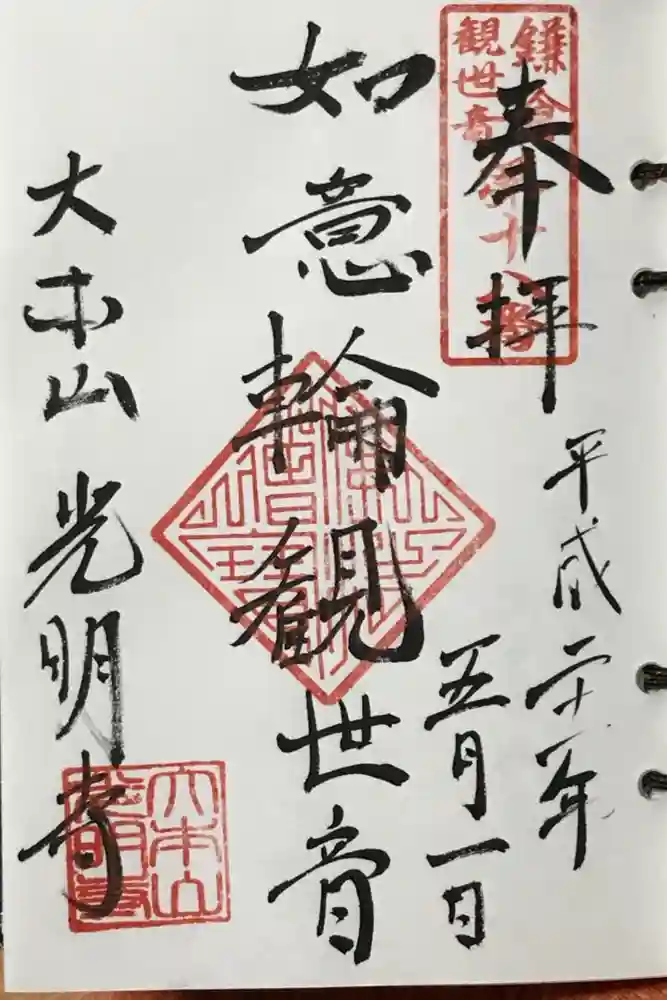 鎌倉
観世音
第十八番
奉拝
平成二十一年
五月一日
如意輪観世音
大本山光明寺
大本山
光明寺